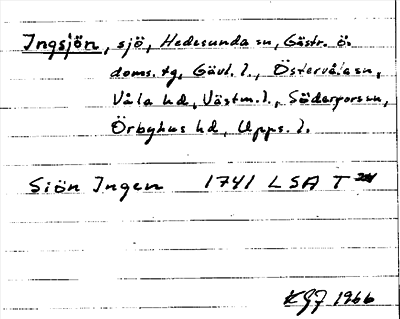 Ingsjön, sjö, Hedesunda sn, Gästr. ö.
doms. tg, Gävl. l., Östervåla sn,
Våla hd, Västm. l., Söderfors sn,
Örbyhus hd, Upps. l.
Siön Ingen 1741 LSA T
KGJ 1966